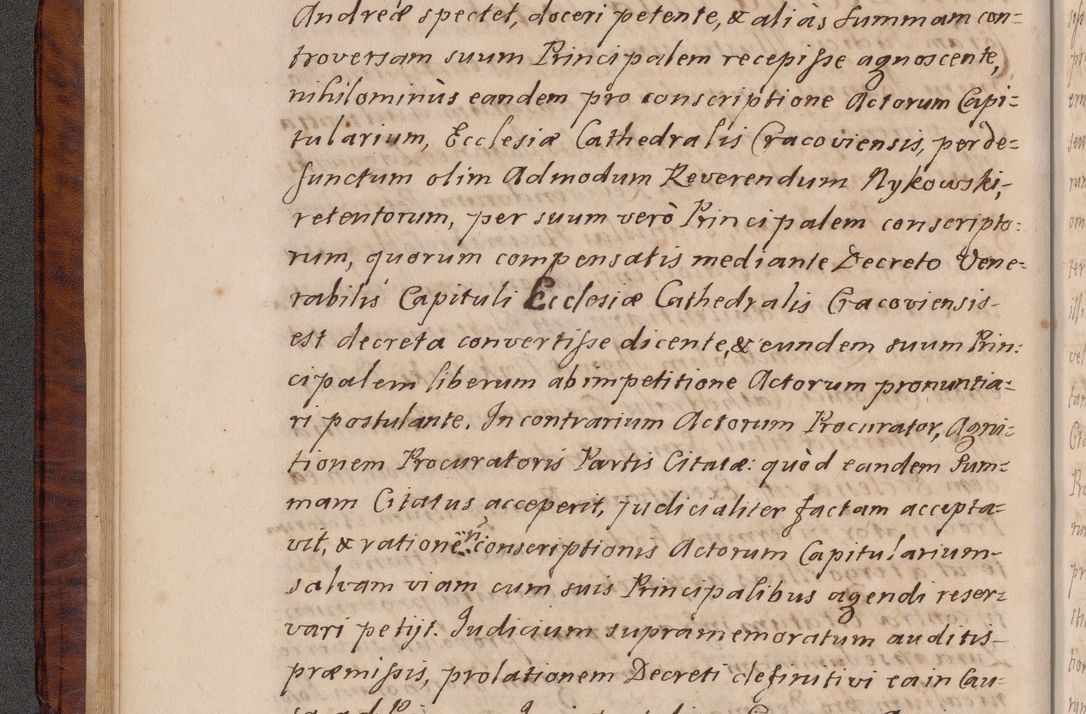 Andreæ spectet, doceri petente, & aliàs summam con=
troversam suum Principalem recepisse agnoscente,
nihilominùs eandem pro conscriptione Actorum Capi=
tularium, Ecclesiæ Cathedralis Cracoviensis, per de=
functum olim Admodum Reverendum Nykowski,
retentorum, per suum verò Principalem conscripto=
rum, quorum compensatis mediante Decreto Vene=
rabilis Capituli Ecclesiæ Cathedralis Cracoviensis
est decreta convertisse dicente, & eundem suum Prin=
cipalem liberum ab impetitione Actorum pronuntia=
ri postulante. In contrarium Actorum Procurator, Agni=
tionem Procuratoris Partis Citatæ: quòd eandem sum=
mam Citatus acceperit, judicialiter factam accepta=
vit, & ratione conscriptionis Actorum Capitularium
salvam viam cum suis Principalibus agendi reser=
vari petijt. Iudicium supramemoratum auditis
præmissis, prolationem Decreti definitivi ea in Cau=